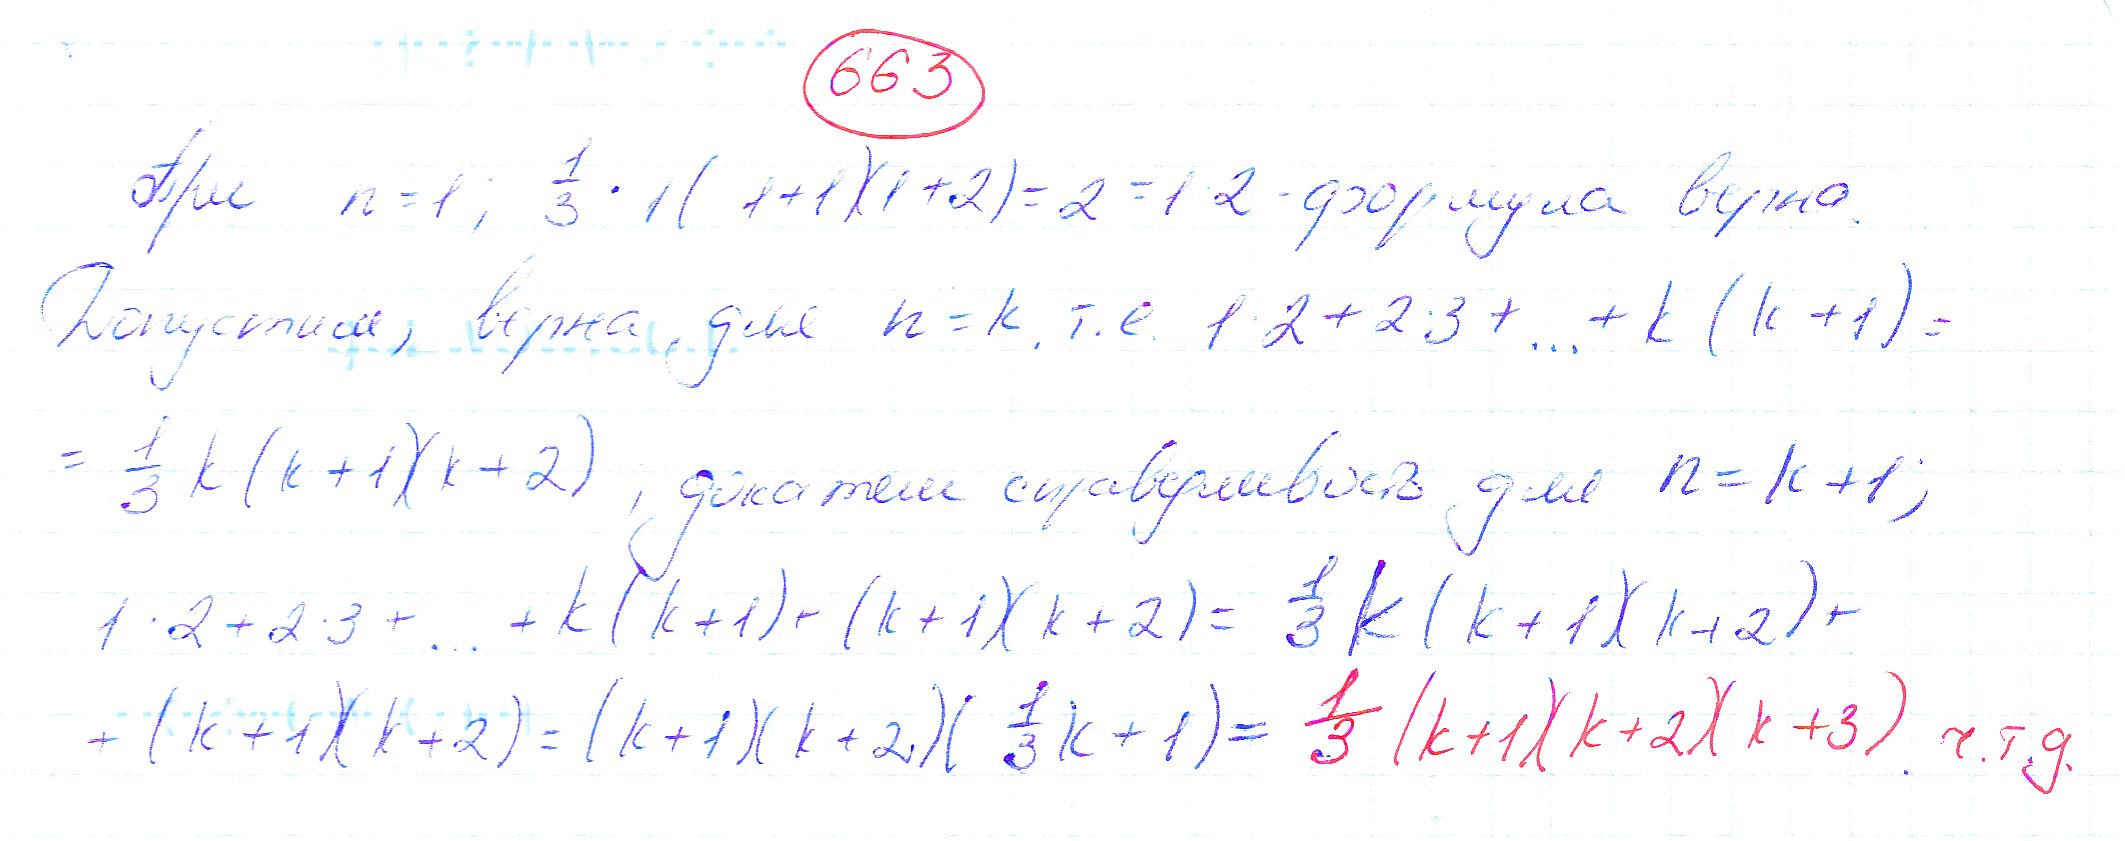 663
При n=1; 1/3 · 1(1+1)(1+2)=2=1·2 - формула верна.
Допустим, верна для n=k, т.е. 1·2+2·3+...+k(k+1)=
= 1/3 k(k+1)(k+2), докажем справедливость для n=k+1;
1·2+2·3+...+k(k+1)+(k+1)(k+2)= 1/3 k(k+1)(k+2)+
+(k+1)(k+2)=(k+1)(k+2)(1/3 k+1)= 1/3 (k+1)(k+2)(k+3). ч.т.д.